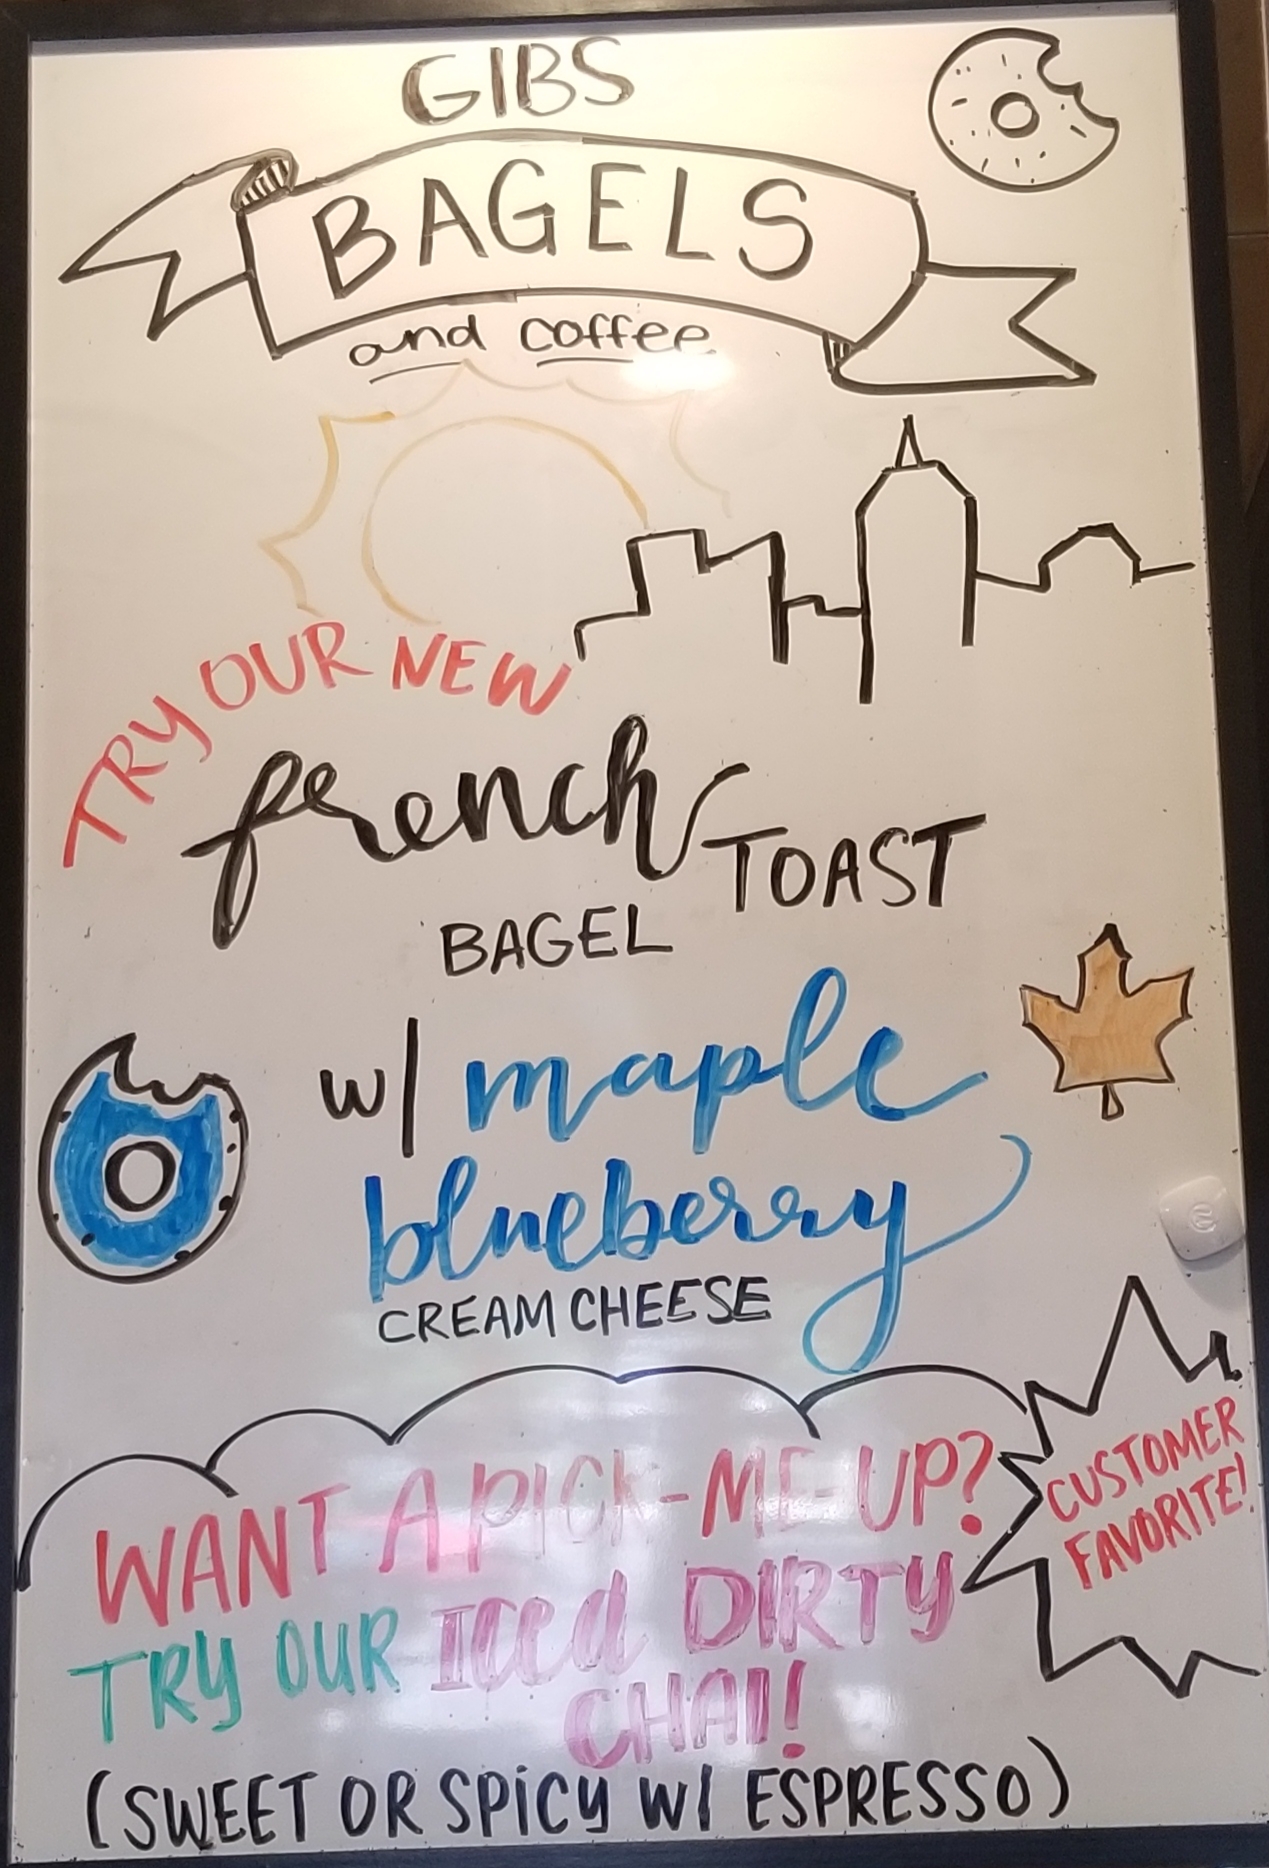 GIBS
BAGELS
and coffee
TRY OUR NEW
french TOAST
BAGEL
w/ maple
blueberry
CREAM CHEESE
WANT A PICK-ME-UP?
CUSTOMER
FAVORITE!
TRY OUR ICed DIRTY
CHAI!
(SWEET OR SPiCy W/ ESPRESSO)